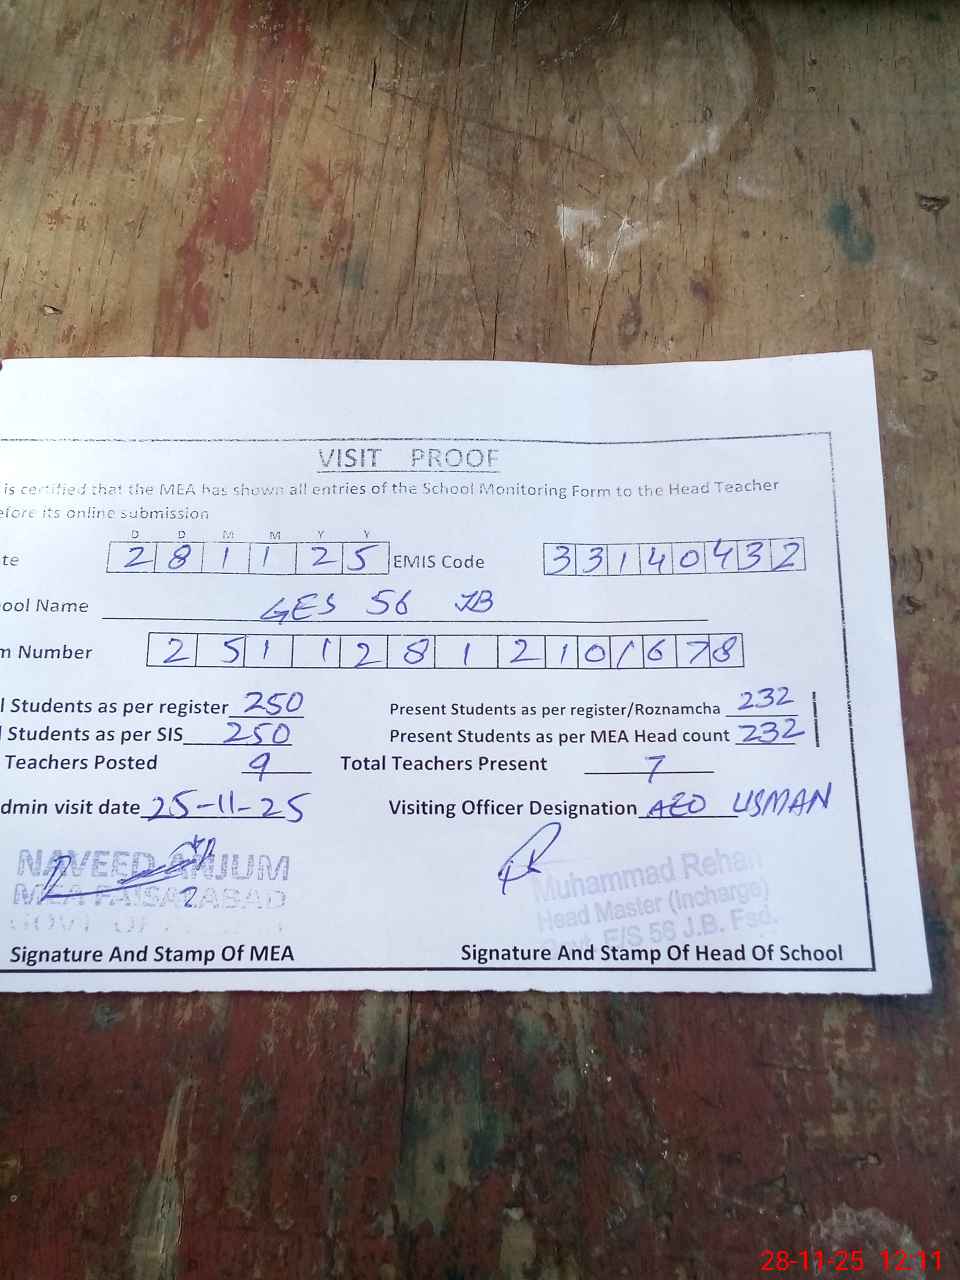 VISIT PROOF
is certified that the MEA has shown all entries of the School Monitoring Form to the Head Teacher
efore its online submission
D D M M Y Y
te 2 8 1 1 2 5 EMIS Code 3 3 1 4 0 4 3 2
ool Name GES 56 JB
m Number 2 5 1 1 2 8 1 2 1 0 1 6 7 8
l Students as per register 250 Present Students as per register/Roznamcha 232
l Students as per SIS 250 Present Students as per MEA Head count 232
Teachers Posted 9 Total Teachers Present 7
dmin visit date 25-11-25 Visiting Officer Designation AEO USMAN
NAVEED ANJUM
MEA FAISALABAD
GOVT OF
Muhammad Rehan
Head Master (Incharge)
Govt. E/S 56 J.B. Fsd.
Signature And Stamp Of MEA Signature And Stamp Of Head Of School
28-11-25 12:11